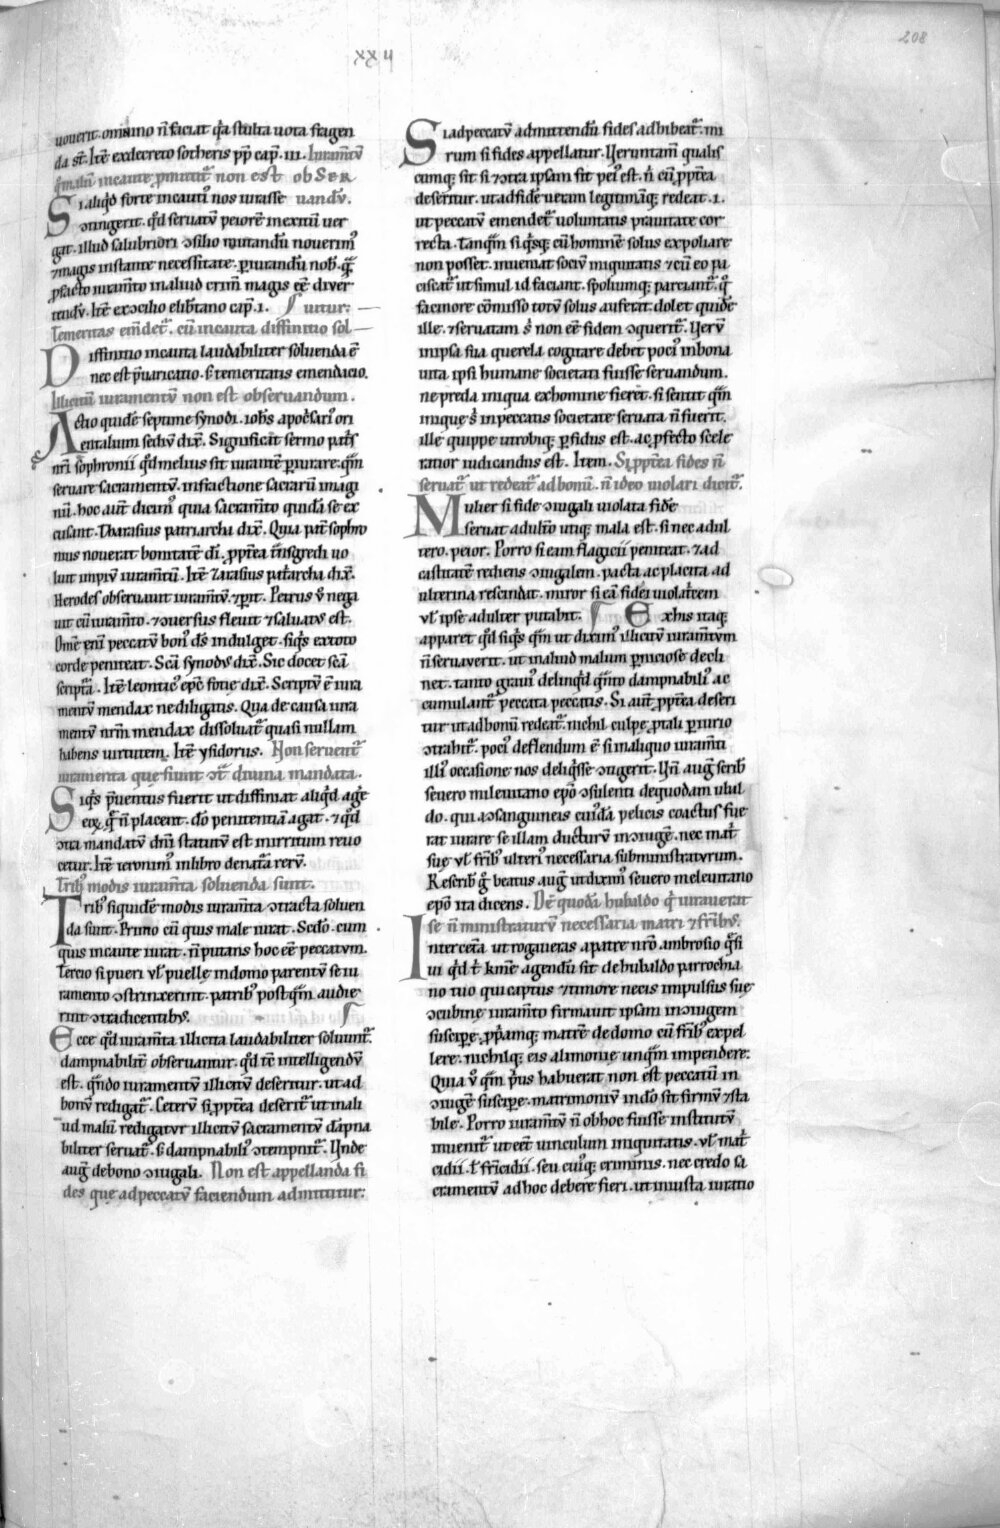 208
xxii
uouerit. omnino n̄ faciat q̇a stulta uota frāgen
da st̄. Itē ex decreto sotheris pp̄ cap̄. iii. Iuramtū
qd̄ malū incaute ꝓmittit᷑ non est obser
Si aliq̇d forte incauti᷒ nos iurasse uandū.
ↄtingerit. qd̄ seruatū peiorē in exitū uer
gat. illud salubriori ↄsilio mutandū nouerim᷒
⁊ magis instante necessitate. ꝑiurandū nob̄. q̄m
ꝓfacto iuram̄to in aliud crim̄ magis eē diuer
tendū. Itē ex ↄcilio elib̄tano cap̄. i. uitur:
Temeritas em̄det᷑. cū incauta diffinitio sol
Diffinitio incauta laudabiliter soluenda ē
nec est p̄uaricatio. s̄ temeritatis emendacio.
Illicitū iuramentū non est obseruandum.
Actio quidē septime synodi. ioh̄s apoc̄sari᷒ ori
entalium sediū dix̄. Significat sermo pat̄s
nr̄i sophronii q̇d melius sit iurantē ꝑiurare. q̄m
seruare sacramentū. in fractione sacrarū imagi
nū. hoc aut̄ dicim᷒ quia sacram̄to quidā se ex
cusant. Tharasius patriarcha dix̄. Quia pat̄ sophro
nius nouerat bonitatē dī. ꝓpt̄ea t̄nsgredi uo
luit impiū iuram̄tū. Itē Tarasius pat̄archa dix̄.
Herodes obseruauit iuram̄tū. ⁊ ꝑiit. Petrus ū nega
uit cū iuram̄to. ⁊ ↄuersus fleuit ⁊ saluat᷒ est.
Om̄e eni᷒ peccatū bon᷒ d̄s indulget. siq̇s ex toto
corde peniteat. Scā synod᷒ dix̄. Sic docet scā
script̄a. Itē leontic᷒ ep̄c fotie dix̄. Scriptū ē iura
mentū mendax ne diligatis. Qua de causa iura
mentū nr̄m mendax dissoluat᷑ quasi nullam
habens uirtutem. Itē ysidorus. Non seruent᷑
iuramenta que fiunt ↄt̄ diuina mandata.
Siq̇s p̄uentus fuerit ut diffiniat aliq̇d ag̃e
ex q̄ n̄ placent. dō penitentiā agat. ⁊ q̇d
ↄtra mandatū dn̄i statutū est in irritum reuo
cetur. Itē ieronim᷒ in libro denatā rerū.
Trib᷒ modis iuram̄ta soluenda sunt.
Trib᷒ siquidē modis iuram̄ta ↄtracta soluen
da sunt. Primo cū quis male iurat. Scd̄o. cum
quis incaute iurat. n̄ putans hoc eē peccatum.
Tercio si pueri ul̄ puelle in domo parentū se iu
ramento ↄstrinxerint. patrib᷒ postq̄m audie
rint ↄtradicentib᷒.
Ecce q̇d iuram̄ta illicita laudabiliter soluunt᷑.
dampnabilit̄ obseruantur. q̇d tē intelligendū
est. q̄ndo iuramentū illicitū deseritur. ut ad
bonū redigat᷑. Ceterū si ꝓpt̄ea deserit᷑ ut mali
ud malū redigatur illicitū sacramentū dāpna
biliter seruat᷑. s̄ dampnabili᷒ ↄtempnit᷑. Unde
aug̃ de bono ↄiugali. Non est appellanda fi
des que ad peccatū faciendum admittitur:
Si ad peccatū admittendū fides adhibeat᷑. mi
rum si fides appellatur. Ueruntam̄ qualis
cumq; sit si ⁊ ↄtra ipsam fit pei᷒ est. n̄ cū ꝓpt̄ea
deseritur. ut ad fidē ueram legitimāq; redeat. i.
ut peccatū emendet᷑ uoluntatis prauitate cor
recta. tanq̄m si q̇sq; cū hominē solus expoliare
non posset. inueniat sociū iniquitatis ⁊ cū eo pa
ciscat᷑ ut simul id faciant. spoliumq; parciant᷑. q᷒
facinore cōmisso totū solus auferat. dolet quidē
ille. ⁊ seruatam s̄ non eē fidem ↄquerit᷑. Uerū
in ipsa sua querela cogitare debet poci᷒ in bona
uita ipsi humane societati fuisse seruandum.
ne preda iniqua ex homine fieret. si sentit q̄m
inique s̄ in peccatis societate seruata n̄ fuerit.
ille quippe utrobiq; ꝑfidus est. ac ꝓfecto scele
ratior iudicandus est. Item. Si ꝓpt̄ea fides n̄
seruat᷑ ut redeat᷑ ad bonū. n̄ ideo uiolari dicit᷑.
Mulier si fide ↄiugali uiolata fidē
seruat adult̄o utiq; mala est. si nec adul
tero. peior. Porro si eam flagicii peniteat. ⁊ ad
castitatē rediens ↄiugalem. pacta ac placita ad
ulterina rescindit. miror si eā fidei uiolat̄cem
ul̄ ipse adulter putabit. Ex his itaq;
apparet q̇d siq̇s q̄m ut dixim᷒ illicitū iuram̄tum
n̄ seruauerit. ut in aliud malum ꝑniciose decli
net. tanto graui᷒ delinq̇d q̄nto dampnabili᷒ ac
cumulant᷑ peccata peccatis. Si aut̄ ꝓpt̄ea deseri
tur ut ad bonū redeat᷑. nichil culpe ꝓ tali ꝑiurio
ↄtrahit᷑. poci᷒ deflendum ē si in aliquo iuram̄ti
illi᷒ occasione nos deliq̇sse ↄtigerit. Un̄ aug̃ scrib̄
seuero mileuitano ep̄o ↄsulenti de quodam ubal
do. qui a ↄsanguineis cui᷒dā pelicis coactus fue
rat iurare se illam ducturū in ↄiugē. nec mat̄
sue ul̄ fr̄ib᷒ ulteri᷒ necessaria subministraturum.
Rescrib̄ g᷒ beatus aug̃ ut dixim᷒ seuero meleuitano
ep̄o ita dicens. Dē quodā hubaldo q̇ iurauerat
se n̄ ministraturū necessaria matri ⁊ fr̄ib᷒.
Intercetā ut rogaueras a patre nr̄o ambrosio q̄si
ui q̇d t̄ kmē agendū sit de hubaldo parrochia
no tuo qui captus ⁊ timore necis impulsus sue
ↄcubine iuram̄to firmauit ipsam in ↄiugem
suscipe. ꝓpriamq; matrē de domo cū fr̄ib᷒ expel
lere. nichilq; eis alimonie unq̄m impendere.
Quia ū q̄m p̄us habuerat non est peccatū in
ↄiugē suscipe. matrimoniū in dn̄o sit firmū ⁊ sta
bile. Porro iuram̄tū n̄ ob hoc fuisse institutū
inuenit᷑ ut eēt uinculum iniquitatis. ul̄ mat̄
cidii. t̄ fr̄icidii. seu cui᷒q; criminis. nec credo sa
cramentū ad hoc debere fieri. ut iniusta iuratio